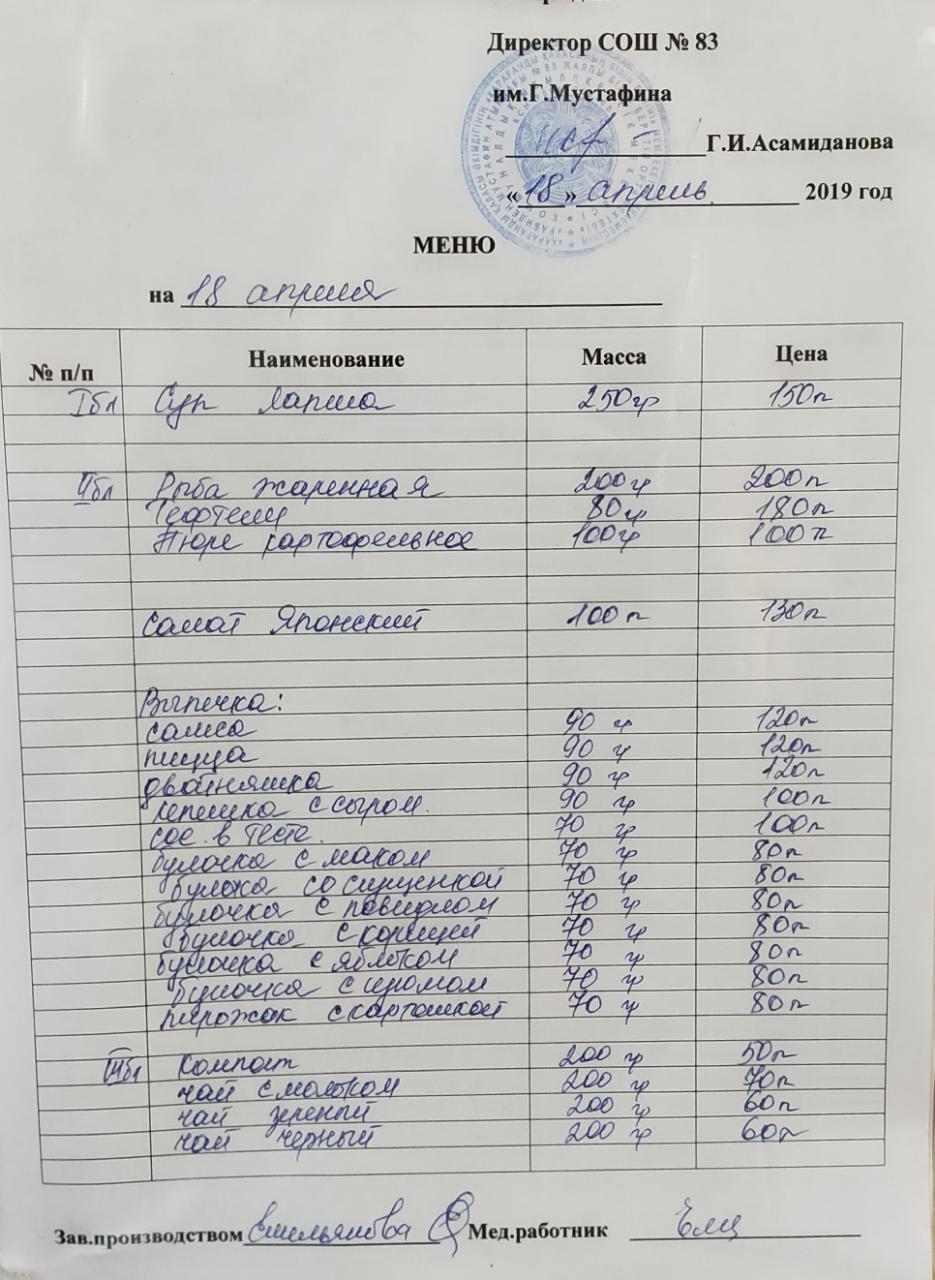 Директор СОШ № 83
им.Г.Мустафина
Г.И.Асамиданова
«18» апрель 2019 год
МЕНЮ
на 18 апреля
№ п/п Наименование Масса Цена
Iбл Суп лапша 250гр 150т
IIбл Рыба жаренная 200гр 200т
Тефтели 80гр 180т
Пюре картофельное 100гр 100т
Салат Японский 100т 130т
Выпечка:
самса 90 гр 120т
пицца 90 гр 120т
двойняшка 90 гр 120т
лепешка с сыром. 90 гр 100т
сос. в тесте. 70 гр 100т
булочка с маком 70 гр 80т
булочка со сгущенкой 70 гр 80т
булочка с повидлом 70 гр 80т
булочка с корицей 70 гр 80т
булочка с яблоком 70 гр 80т
булочка с изюмом 70 гр 80т
пирожок с картошкой 70 гр 80т
IIIбл Компот 200 гр 50т
чай с молоком 200 гр 70т
чай зеленый 200 гр 60т
чай черный 200 гр 60т
Зав.производством Емельянова Мед.работник